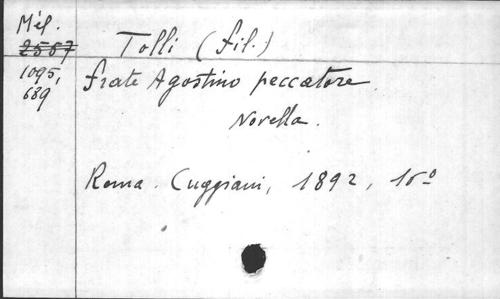 Mél.
2567
1095,
689
Tolli (fil.)
frate Agostino peccatore
Novella.
Roma. Cuggiani, 1892, 16°